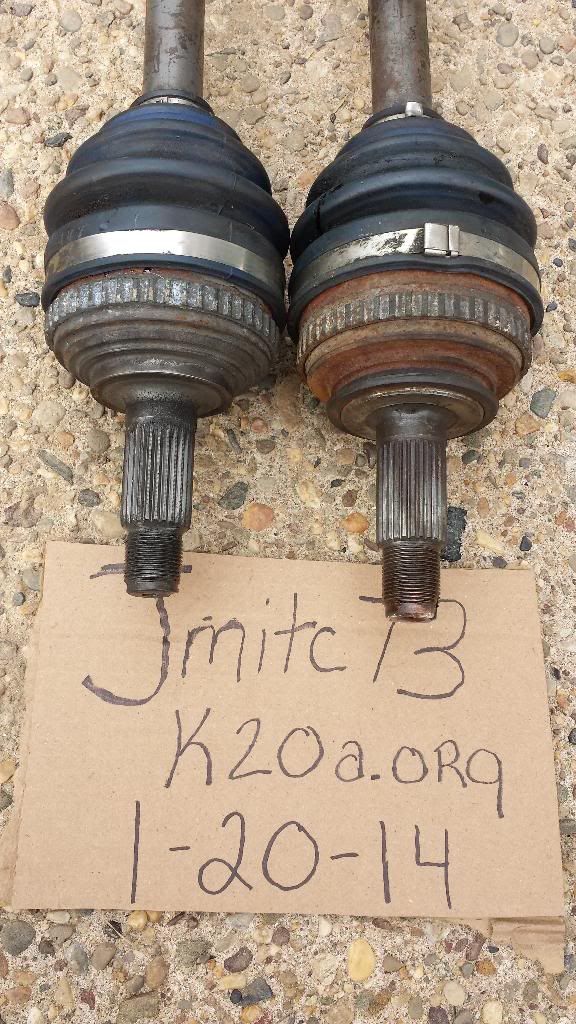 Jmitc73
K20a.org
1-20-14